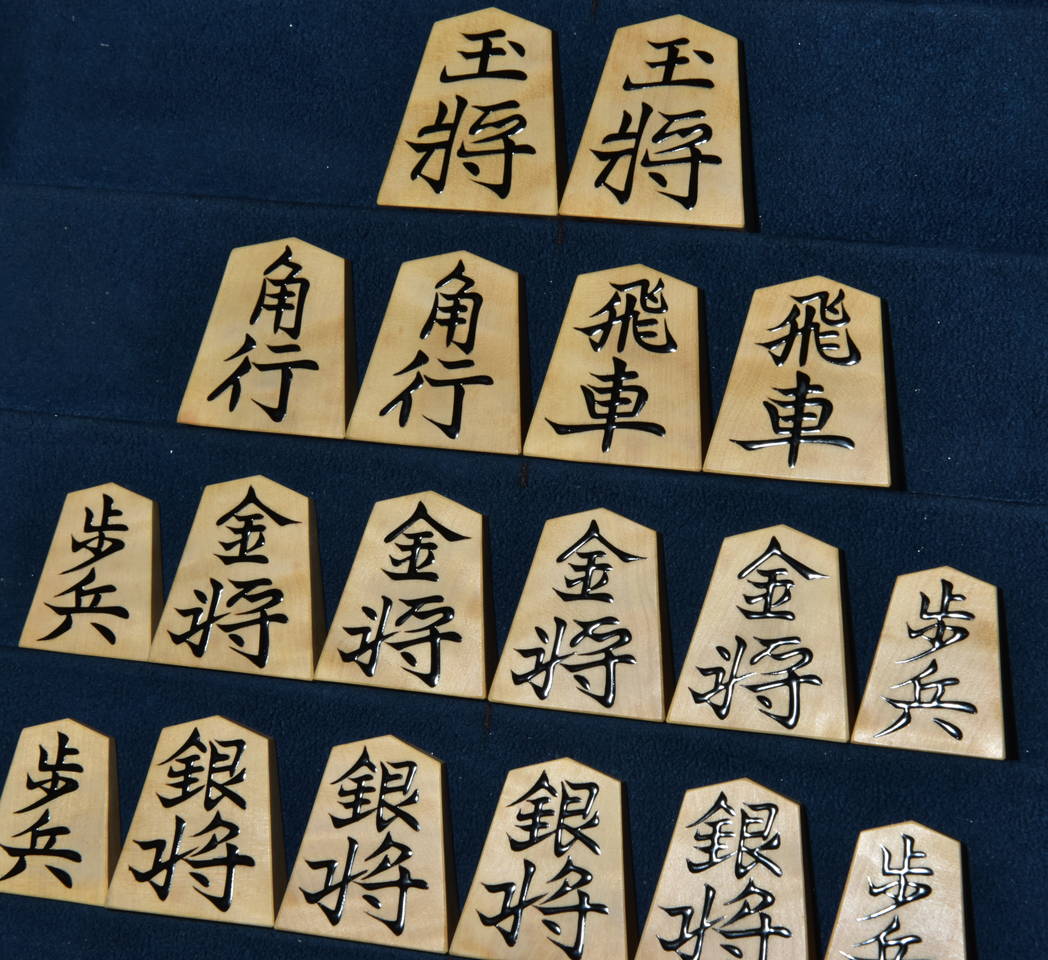 玉將 玉將
角行 角行 飛車 飛車
歩兵 金将 金将 金将 金将 歩兵
歩兵 銀将 銀将 銀将 銀将 歩兵